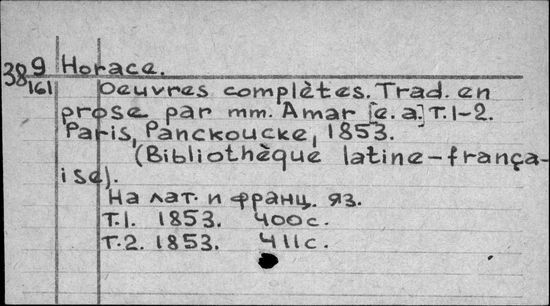 38 9 Horace.
161 Oeuvres complètes. Trad. en
prose par mm. Amar [e. a.] T.1-2.
Paris, Panckoucke, 1853.
(Bibliothèque latine-frança-
ise).
На лат. и франц. яз.
Т.1. 1853. 400с.
Т.2. 1853. 411с.